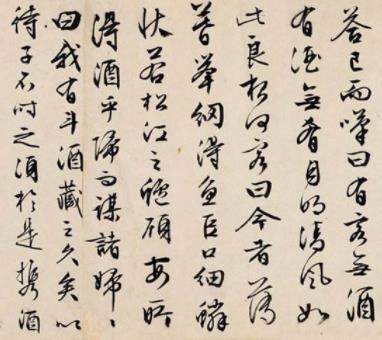 答已而嘆曰有客無酒
有酒無肴月明清風如
此良夜何客曰今者薄
暮舉網得魚巨口細鱗
狀若松江之鱸顧安所
得酒乎歸而謀諸婦〻
曰我有斗酒藏之久矣以
待子不時之須於是攜酒